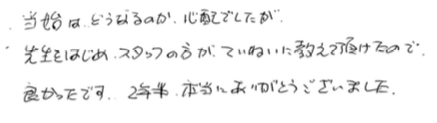 当始は、どうなるのか、心配でしたが、
先生をはじめ、スタッフの方が、ていねいに教えて頂けたので、
良かったです。 2年半、本当にありがとうございました。